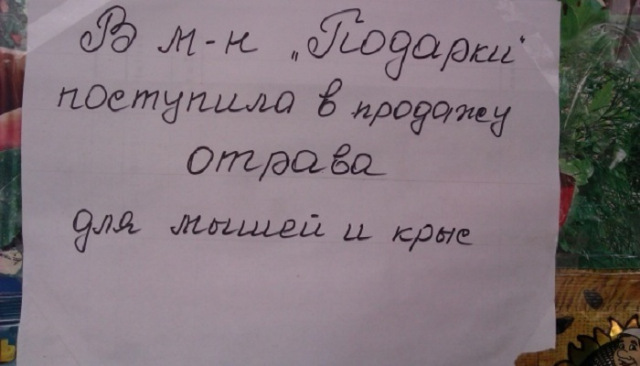 В м-н „Подарки“
поступила в продажу
отрава
для мышей и крыс